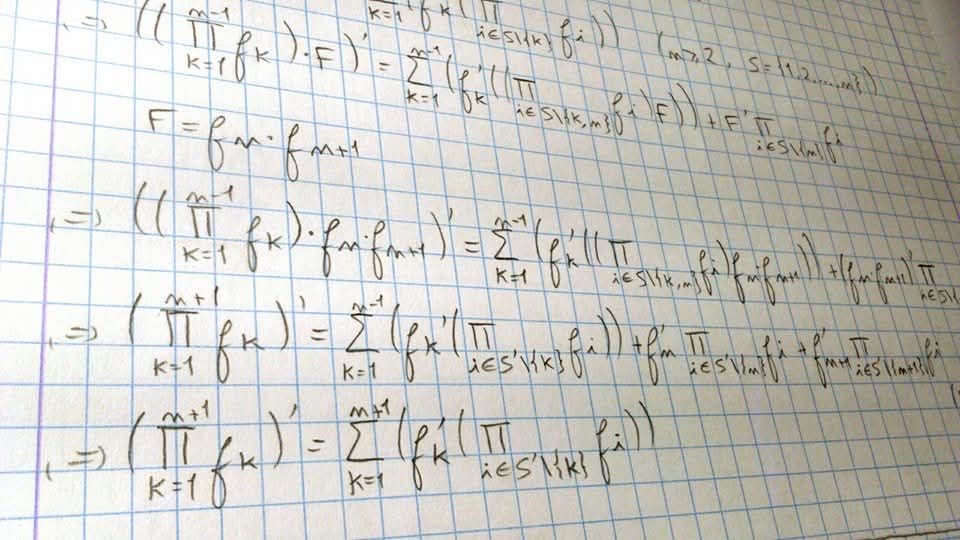 k=1 f'k(∏i∈S\{k} fi)) (m≥2, S={1,2,....,m})
=> ((∏k=1^m-1 fk)·F)' = ∑k=1^m-1 (f'k((∏i∈S\{k,m} fi)F)) + F'∏i∈S\{m} fi
F = fm·fm+1
=> ((∏k=1^m-1 fk)·fm·fm+1)' = ∑k=1^m-1 (f'k((∏i∈S\{k,m} fi)fm·fm+1)) + (fm·fm+1)'∏i∈S\
=> (∏k=1^m+1 fk)' = ∑k=1^m-1 (fk'(∏i∈S'\{k} fi)) + f'm ∏i∈S'\{m} fi + f'm+1 ∏i∈S'\{m+1} fi
=> (∏k=1^m+1 fk)' = ∑k=1^m+1 (f'k(∏i∈S'\{k} fi))